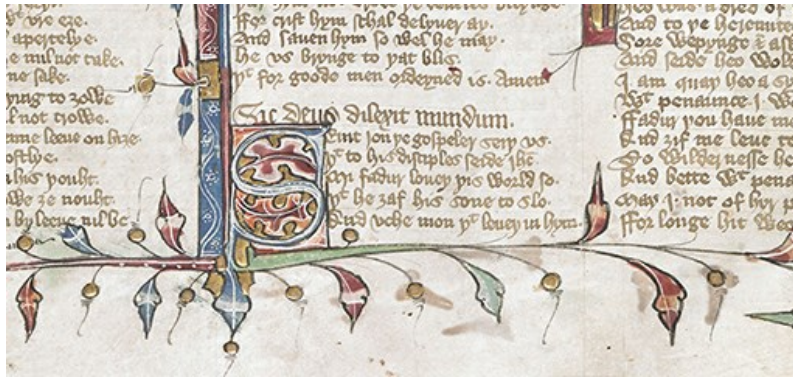 vre eȝe.
apertelye.
e wil not take.
ne sake.
ying to ȝowe
l not trowe.
ame leeue on hiȝe.
oftlye.
n his þouht.
we ȝe nouht.
n by leeue nil be
ffor crist hym schal delyuer ay.
And sauen hym so wel he may.
he vs brynge to þat blis.
Þt for goode men ordeyned is. Amen
Sic deus dilexit mundum.
Seint Jon þe gospeler seiþ vs.
Þt to his disciples seide ihc.
Mi fadur loueþ þis world so.
Þt he ȝaf his sone to slo.
And vche mon þt leueþ in hym.
And to þe heremite
Sore wepynge &
And seide heo wol
I am quaþ heo a sy
Wt penaunce I. W
ffadur ȝou haue me
And ȝif me leue t
To wildernesse he
And bette Wt pena
May I. not of hyr p
ffor longe hit